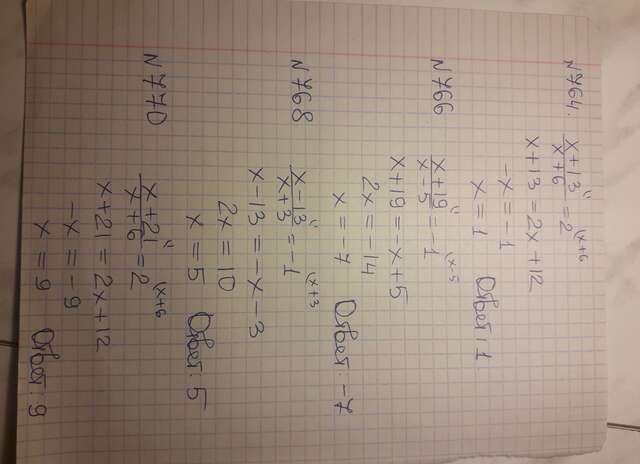 N764. (x+13)/(x+6) = 2 |x+6
x+13 = 2x+12
-x = -1
x = 1 Ответ: 1
N766 (x+19)/(x-5) = -1 |x-5
x+19 = -x+5
2x = -14
x = -7 Ответ: -7
N768 (x-13)/(x+3) = -1 |x+3
x-13 = -x-3
2x = 10
x = 5 Ответ: 5
N770 (x+21)/(x+6) = 2 |x+6
x+21 = 2x+12
-x = -9
x = 9 Ответ: 9